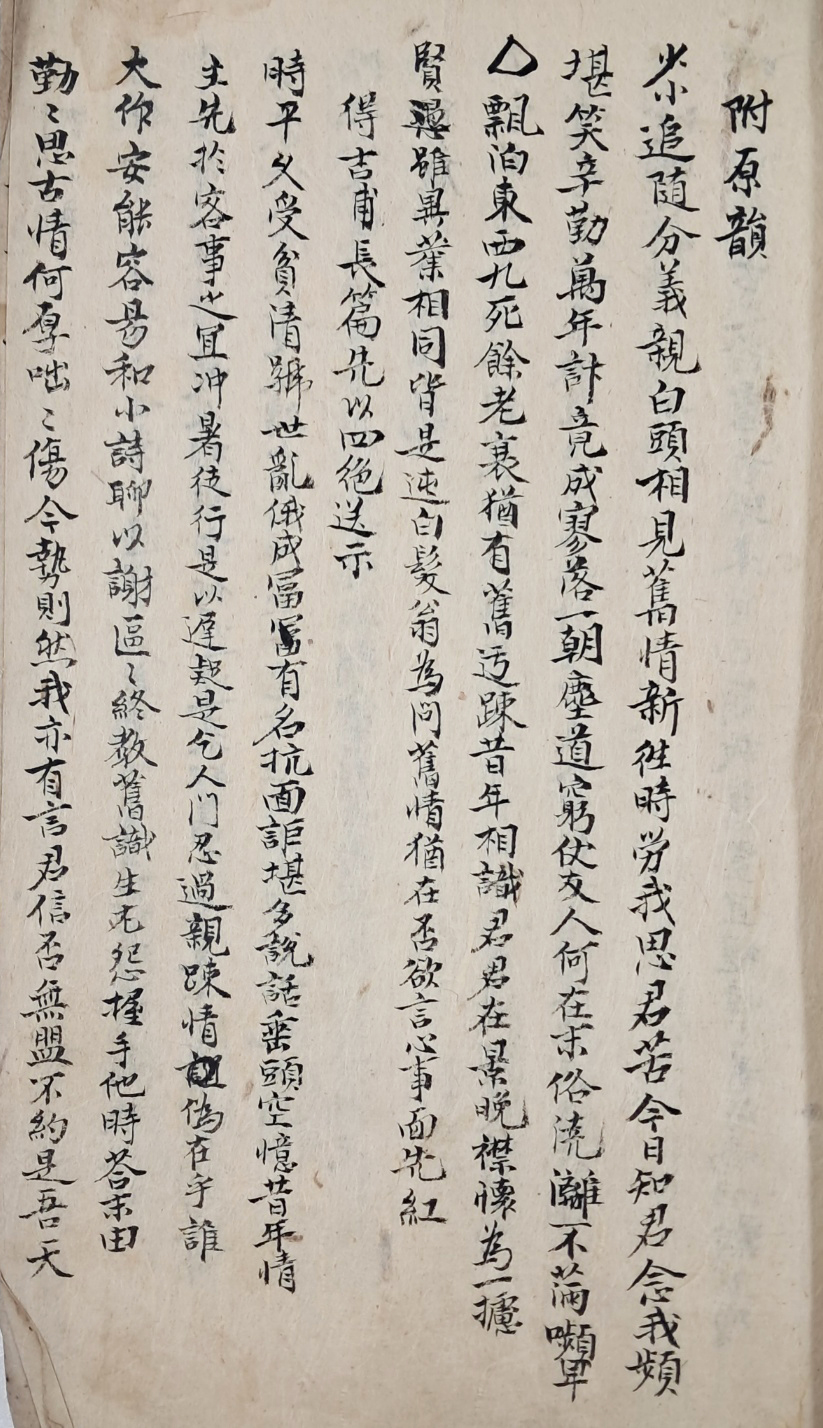 附原韻
少小追隨分義親白頭相見舊情新徃時勞我思君苦今日知君念我頻
堪笑辛勤萬年計竟成寥落一朝塵道窮仗友人何在末俗澆漓不滿嚬
△飄泊東西九死餘老衰猶有舊迃踈昔年相識君男在景晚襟懷為一攄
賢愚雖異業相同皆是迍白髮翁為問舊情猶在否欲言心事面先紅
得吉甫長篇先以四絶送示
時平久受貧清號世亂俄成富有名抗面詎堪多說話垂頭空憶昔年情
主先於客事之宜冲暑徒行是以遲超是乞人門忍過親踈情偽在乎誰
大作安能容昜和小詩聊以謝區〻終教舊識生无怨握手他時荅末由
勤〻思古情何厚咄〻傷今勢則然我亦有言君信否無盟不約是吾天